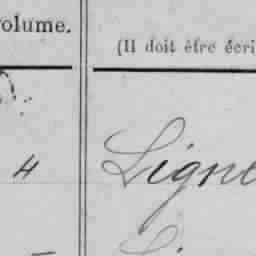 volume.
(Il doit être écri
4 Ligne